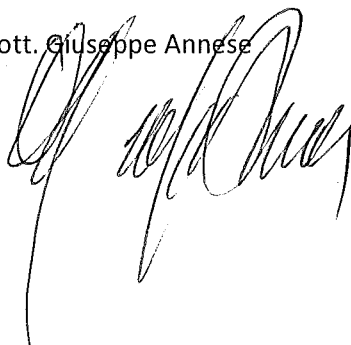 ott. Giuseppe Annese